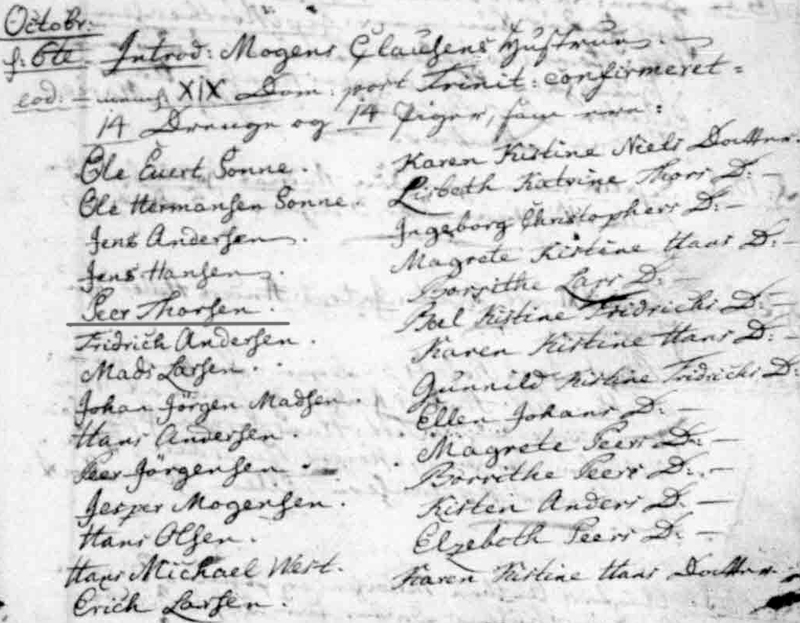 Octobr:
f: 6te Introd: Mogens Clausens Hustrue.
eod: XIX Dom: post Trinit: confirmeret
14 Drenge og 14 Piger, som vare:
Ole Evert Sonne. Karen Kistine Niels Dotter.
Ole Hermansen Sonne. Lisbeth Katrine Thors D:
Jens Andersen. Ingeborg Christophers D:
Jens Hansen. Magrete Kistine Hans D:
Peer Thorsen. Borrithe Lars D:
Fridrich Andersen. Boel Kistine Fridrichs D:
Mads Larsen. Karen Kistine Hans D:
Johan Jörgen Madsen. Gunnild Kistine Fridrichs D:
Hans Andersen. Ellen Johans D:
Peer Jörgensen. Magrete Peers D:
Jesper Mogensen. Borrithe Peers D:
Hans Olsen. Kisten Anders D:
Hans Michael West. Elzebeth Peers D:
Erich Larsen. Karen Kistine Hans Dotter.